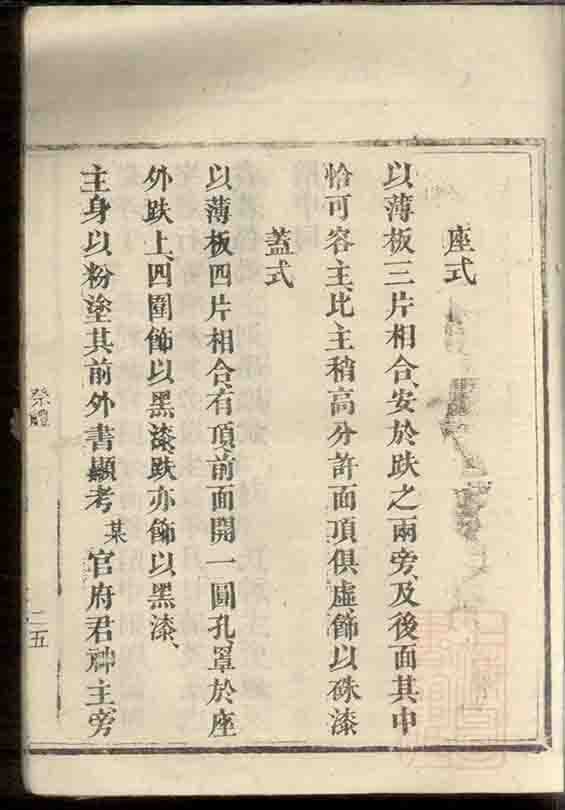 座式
以薄板三片相合、安於趺之兩旁、及後面其中
恰可容主、比主稍高分許面頂俱虛、飾以硃漆
蓋式
以薄板四片相合、有頂、前面開一圓孔、罩於座
外趺上、四圍飾以黑漆、趺亦飾以黑漆、
主身以粉塗其前外書顯考某官府君神主、旁
祭禮
二五